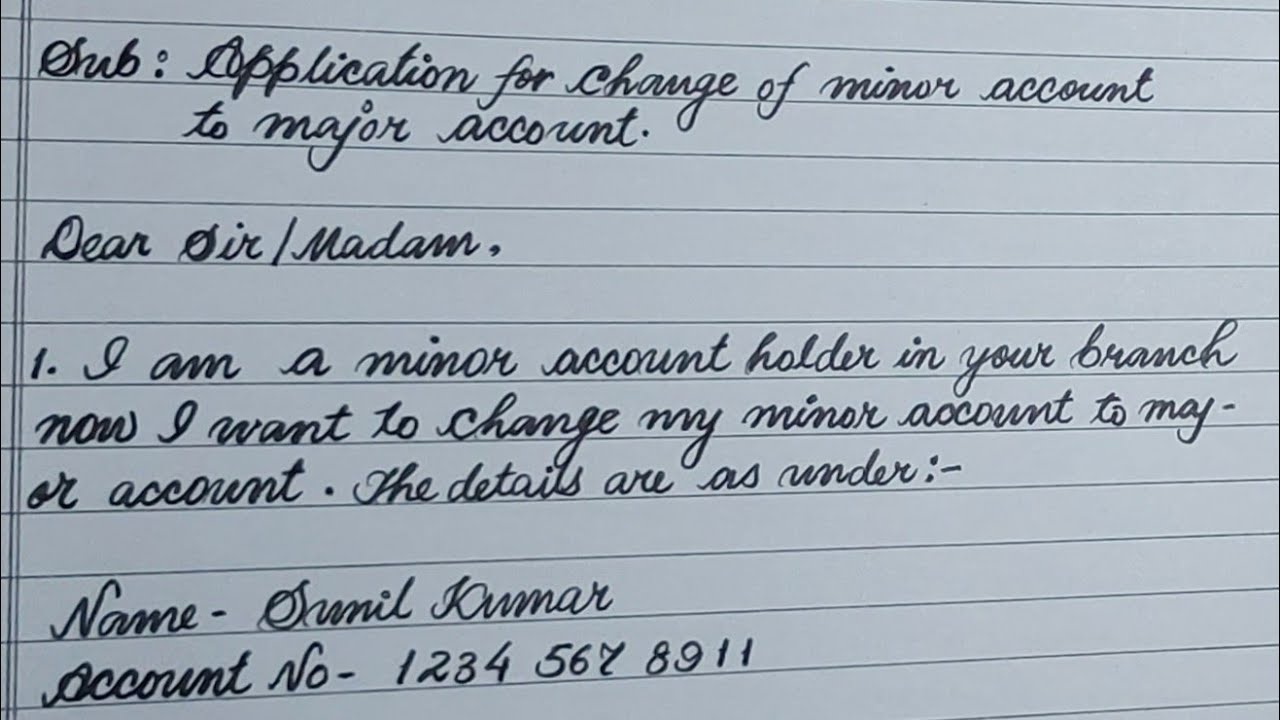 Sub: Application for change of minor account
to major account.
Dear Sir/Madam,
1. I am a minor account holder in your branch
now I want to change my minor account to maj-
or account. The details are as under:-
Name- Sunil Kumar
Account No- 1234 567 8911